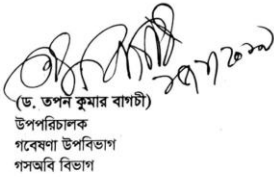 (ড. তপন কুমার বাগচী)
উপপরিচালক
গবেষণা উপবিভাগ
গসঅবি বিভাগ